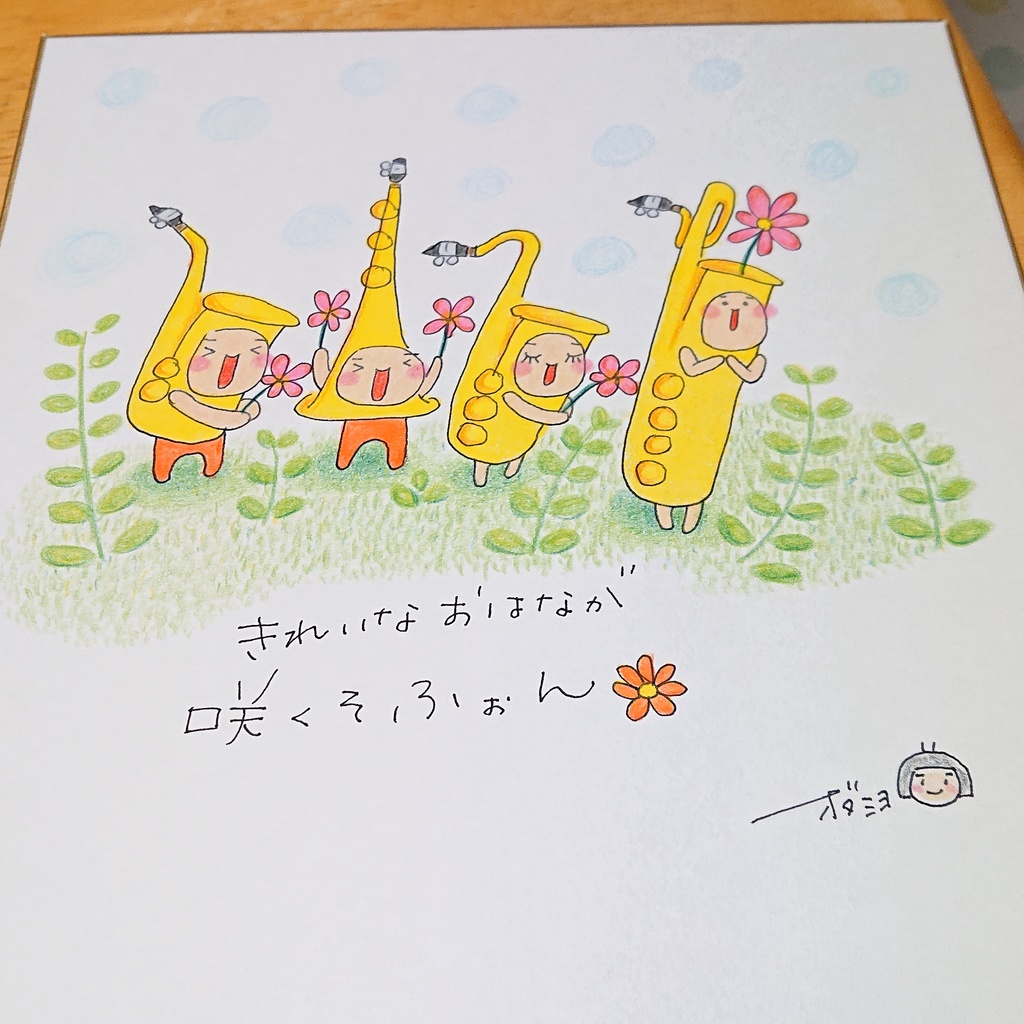 きれいな おはなが
咲くそふぉん
オダミヨ